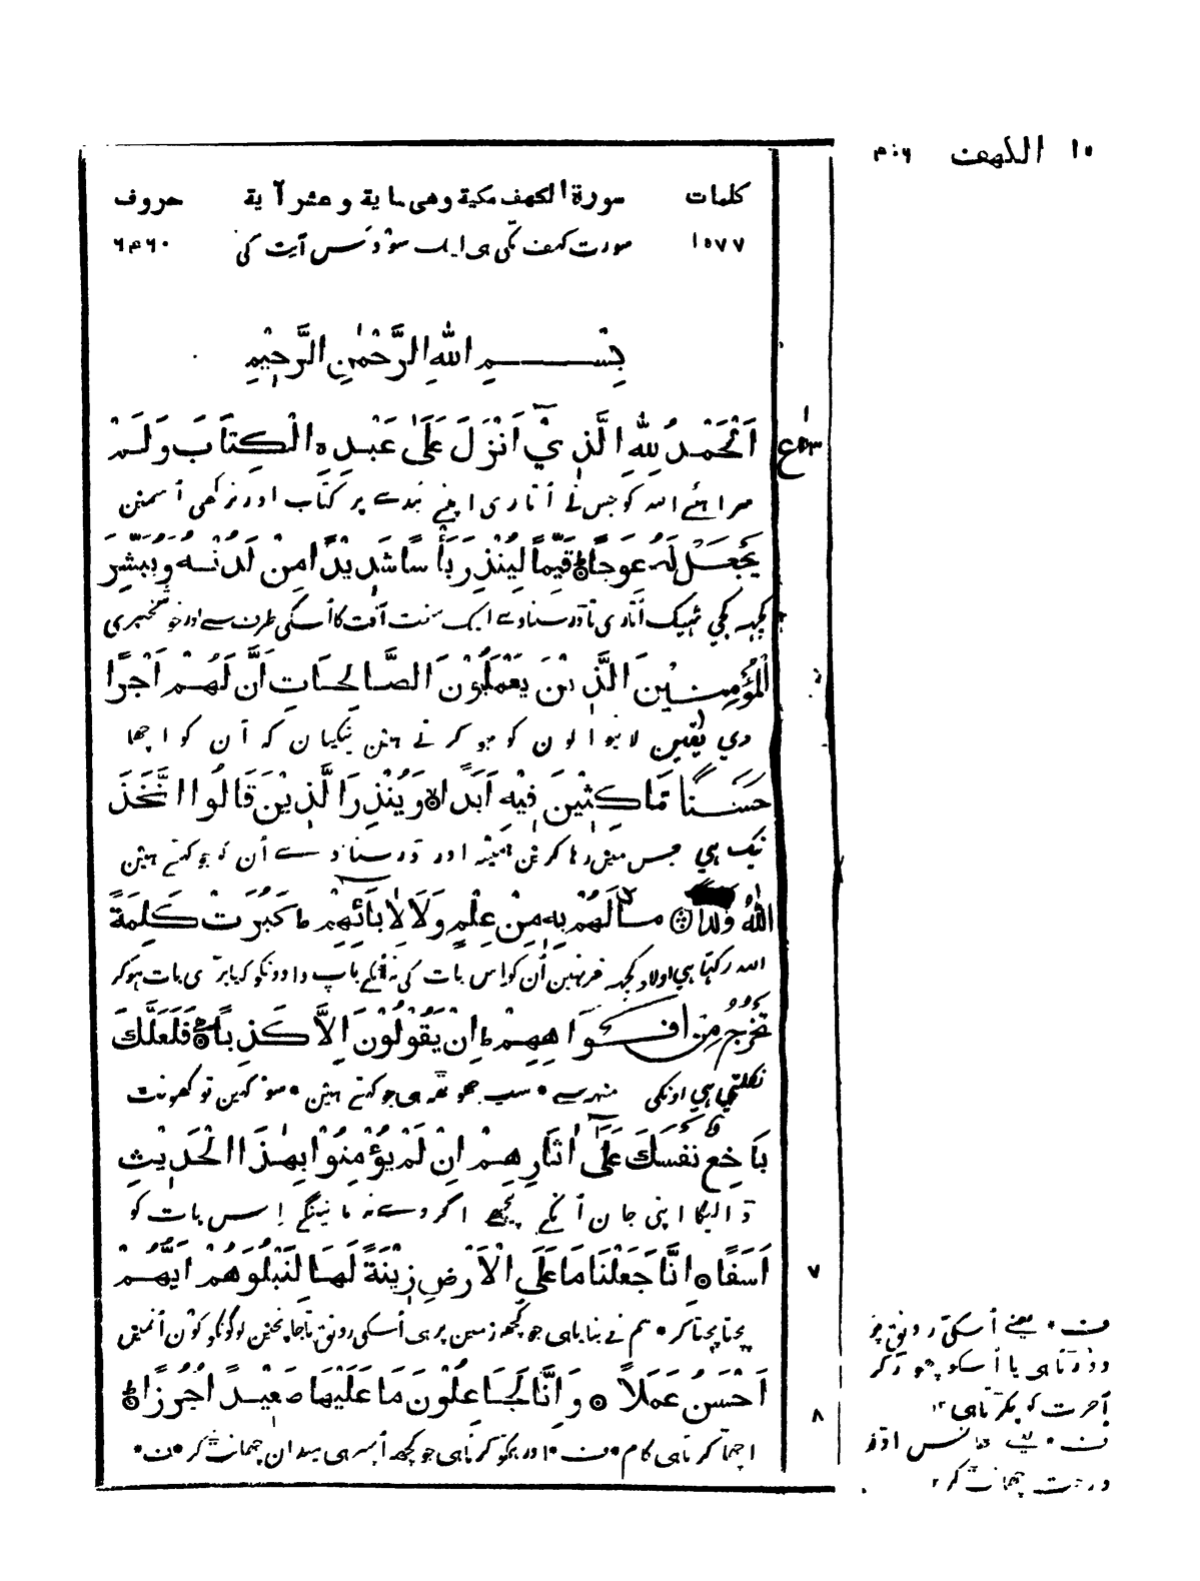 ١٥ الكهف
كلمات سورة الكهف مكية وهى ماية وعشر آية حروف
١٥٧٧ سورت كهف مكّي هى ايك سو دس آيت كي
بِسْمِ اللهِ الرَّحْمٰنِ الرَّحِيْمِ
اَلْحَمْدُ لِلّٰهِ الَّذِيْٓ اَنْزَلَ عَلَىٰ عَبْدِهِ الْكِتَابَ وَلَمْ
سراہئے اللہ کو جس نے اُتاری اپنے بندے پر کتاب اور نرکھی اُسمین
يَجْعَلْ لَهُ عِوَجًا قَيِّمًا لِيُنْذِرَ بَأْسًا شَدِيْدًا مِنْ لَدُنْهُ وَيُبَشِّرَ
کچہہ کجي ٹھیک اُتاری تا ڈر سناوے ایک سخت آفت کا اُسکی طرف سے اور خوشخبری
الْمُؤْمِنِيْنَ الَّذِيْنَ يَعْمَلُوْنَ الصَّالِحَاتِ اَنَّ لَهُمْ اَجْرًا
دي یقین لانیوالون کو جو کرتے ہین نیکیان کہ اُن کو اچھا
حَسَنًا مَاكِثِيْنَ فِيْهِ اَبَدًا وَيُنْذِرَ الَّذِيْنَ قَالُوا اتَّخَذَ
نیگ ہي جس مین رہا کرین ہمیشہ اور ڈر سناوے اُن کو جو کہتے ہین
اللهُ وَلَدًا مَا لَهُمْ بِهٖ مِنْ عِلْمٍ وَلَا لِاٰبَائِهِمْ ط كَبُرَتْ كَلِمَةً
اللہ رکھتا ہي اولاد کچہہ خبر نہین اُن کو اِس بات کی نہ اُنکے باپ دادونکو کیا بڑی بات ہوکر
تَخْرُجُ مِنْ اَفْوَاهِهِمْ ط اِنْ يَقُوْلُوْنَ اِلَّا كَذِبًا فَلَعَلَّكَ
نکلتي ہي اونکی منہہ سے • سب جھوٹھہ ہی جو کہتے ہین • سو کہین تو گھونٹ
بَاخِعٌ نَفْسَكَ عَلَىٰٓ اٰثَارِهِمْ اِنْ لَمْ يُؤْمِنُوْا بِهٰذَا الْحَدِيْثِ
ڈالیگا اپنی جان اُنکے پیچھے اگر وے نہ مانینگے اِس بات کو
اَسَفًا اِنَّا جَعَلْنَا مَا عَلَى الْاَرْضِ زِيْنَةً لَهَا لِنَبْلُوَهُمْ اَيُّهُمْ ٧
پچتا پچتا کر • ہم نے بنایا ہی جو کچھ زمین پر ہی اُسکی رونق تا جانچین لوگونکو کون اُنمین
اَحْسَنُ عَمَلًا وَاِنَّا لَجَاعِلُوْنَ مَا عَلَيْهَا صَعِيْدًا جُرُزًا ٨
اچھا کرتا ہی کام • ف • اور ہمکو کرنا ہی جو کچھ اُسپر ہی میدان چھانٹ کر • ف •
ف • یعنے اُسکی رونق پر
دوڑتا ہی یا اُسکو چھوڑ کر
آخرت کو پکڑتا ہی ١٢
ف • یعنے گھانس اور
درخت چھانٹ کر